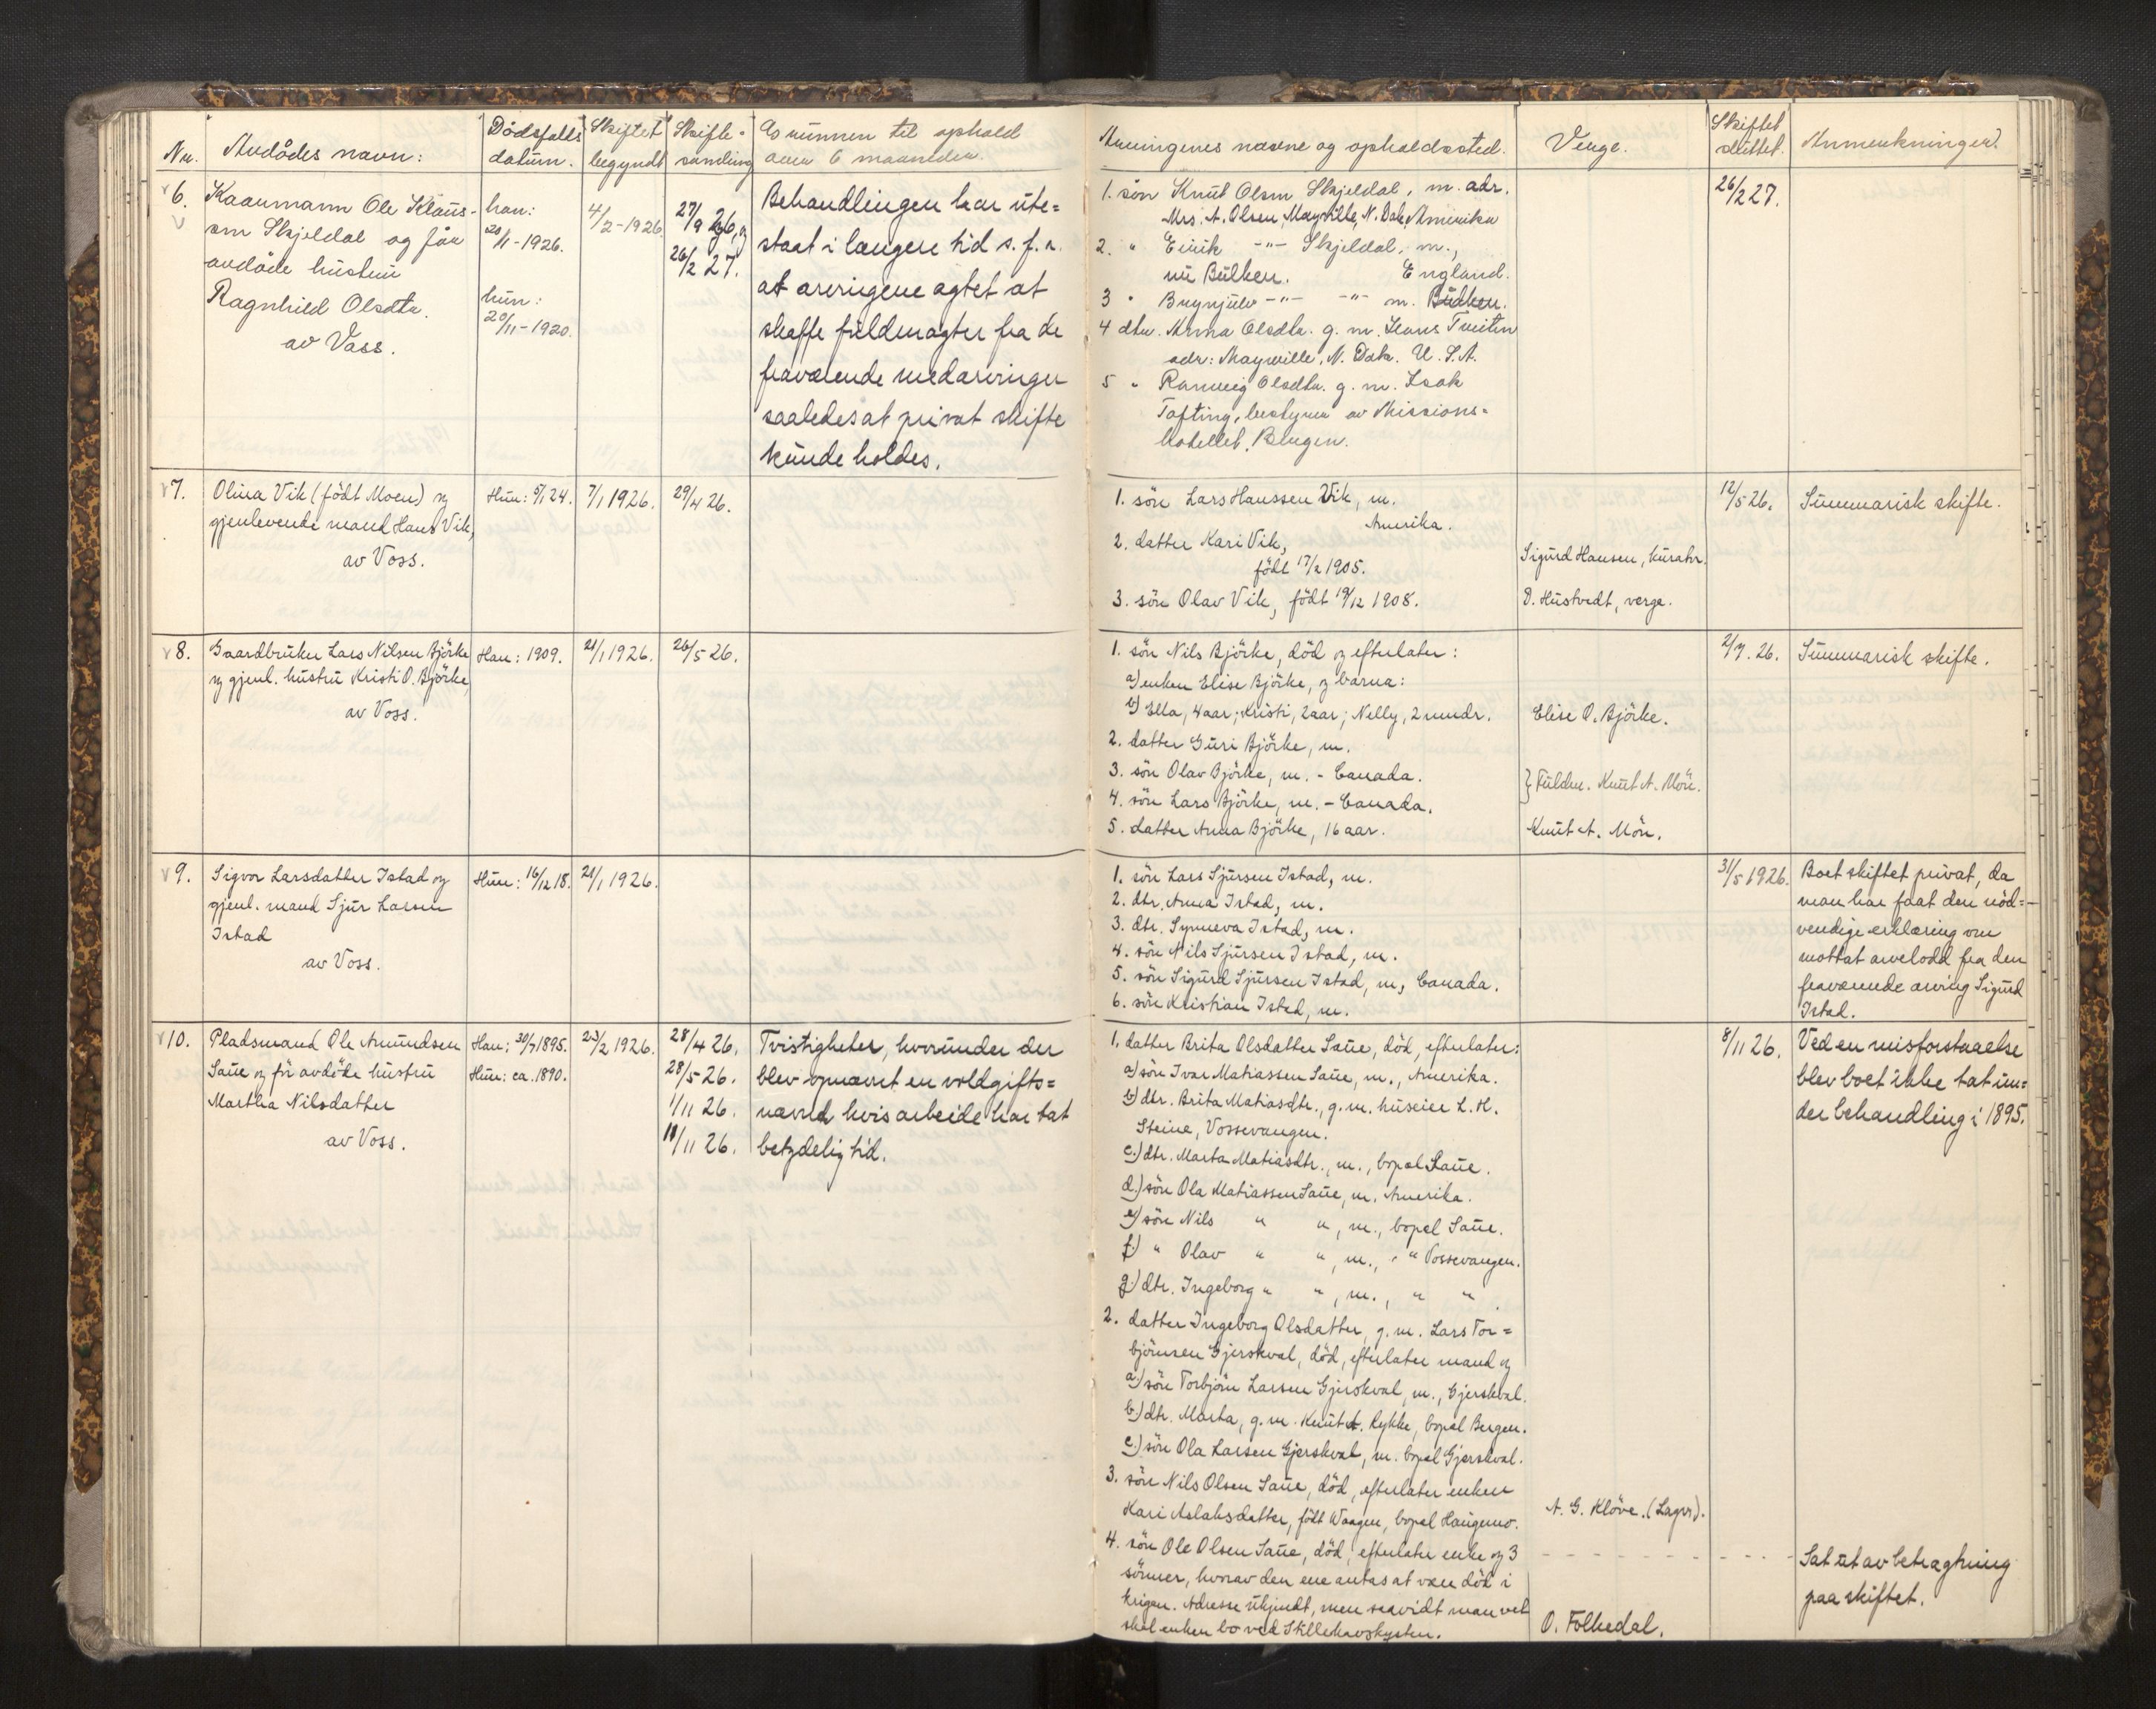 Nr.
Avdødes navn:
Dødsfalls
datum.
Skiftet
begyndt
Skifte-
samling
Grunnen til ophold
over 6 maaneder.
Arvingenes navne og opholdssted.
Verge.
Skiftet
sluttet.
Anmerkninger.
6.
Kaarmann Ole Klaus-
sen Skjeldal og før
avdøde hustru
Ragnhild Olsdtr.
av Voss.
han:
20/1-1926.
hun:
20/11-1920.
4/2-1926
27/9 26, og
26/2 27.
Behandlingen har ute=
staat i længere tid s. f. a.
at arvingene agtet at
skaffe fuldmagter fra de
fraværende medarvinger
saaledes at privat skifte
kunde holdes.
1. søn Knut Olsen Skjeldal, m. adr.
Mrs. A. Olsen, Mayville, N. Dak, Amerika
2. " Eirik -"- Skjeldal, m.,
nu Bulken. England.
3 " Brynjulv -"- -"- m. Bulken.
4 dtr. Anna Olsdtr. g. m. Hans Tveiten
adr: Mayville, N. Dak. U. S. A.
5 " Ranveig Olsdtr. g. m. Isak
Tofting, bestyrer av Missions=
hotellet, Bergen.
26/2 27.
7.
Olina Vik (født Moen) og
gjenlevende mand Hans Vik,
av Voss.
Hun: 5/1 24.
7/1 1926.
29/4 26.
1. søn Lars Hanssen Vik, m.
Amerika.
2. datter Kari Vik,
født 17/2 1905.
3. søn Olav Vik, født 19/12 1908.
Sigurd Hansen, kurator.
O. Hustvedt, verge.
12/5 26.
Summarisk skifte.
8.
Gaardbruker Lars Nilsen Bjørke
og gjenl. hustru Kristi O. Bjørke,
av Voss.
Han: 1909.
21/1 1926.
26/5 26.
1. søn Nils Bjørke, død og efterlater:
a) enken Elise Bjørke, og barna:
b) Ella, 4 aar; Kristi, 2 aar; Nelly, 2 mndr.
2. datter Guri Bjørke, m.
3. søn Olav Bjørke, m. - Canada.
4. søn Lars Bjørke, m. - Canada.
5. datter Anna Bjørke, 16 aar.
Elise O. Bjørke.
} Fuldm. Knut A. Møn.
Knut A. Møn.
2/7. 26.
Summarisk skifte.
9.
Sigvor Larsdatter Istad og
gjenl. mand Sjur Larsen
Istad
av Voss.
Hun: 16/12 18.
21/1 1926.
1. søn Lars Sjursen Istad, m.
2. dtr. Anna Istad, m.
3. dtr. Synneva Istad, m.
4. søn Nils Sjursen Istad, m.
5. søn Sigurd Sjursen Istad, m, Canada.
6. søn Kristian Istad, m.
31/5 1926.
Boet skiftet privat, da
man har faat den nød=
vendige erklæring om
mottat arvelodd fra den
fraværende arving Sigurd
Istad.
10.
Pladsmand Ole Amundsen
Saue og før avdøde hustru
Martha Nilsdatter
av Voss.
Han: 30/7 1895.
Hun: ca. 1890.
23/2 1926.
28/4 26.
28/5 26.
1/11 26.
18/11 26.
Tvistigheter, hvorunder der
blev opnævnt en voldgifts=
nævnd hvis arbeide har tat
betydelig tid.
1. datter Brita Olsdatter Saue, død, efterlater:
a) søn Ivar Matiassen Saue, m., Amerika.
b) dtr. Brita Matiasdtr., g. m. huseier L. H.
Steine, Vossevangen.
c.) dtr. Marta Matiasdtr., m., bopæl Saue.
d.) søn Ola Matiassen Saue, m. Amerika.
e) søn Nils " ", m., bopel Saue.
f) " Olav " ", m., " Vossevangen.
g.) dtr. Ingeborg " ", m., " "
2. datter Ingeborg Olsdatter, g. m. Lars Tor=
bjørnsen Gjerskval, død, efterlater mand og
a.) søn Torbjørn Larsen Gjerskval, m., Gjerskval.
b.) dtr. Marta, g. m. Knut A. Rykke, bopel Bergen.
c.) søn Ola Larsen Gjerskval, m. bopel Gjerskval.
3. søn Nils Olsen Saue, død, efterlater enken
Kari Aslaksdatter, født Waagen, bopel Haugamo.
4. søn Ole Olsen Saue, død, efterlater enke og 3
sønner, hvorav den ene antas at være død i
krigen. Adresse ukjendt, men saavidt man vet
skal enken bo ved Stillehavskysten.
A. G. Kløve. (Lagvr).
O. Folkedal.
8/11 26.
Ved en misforstaaelse
blev boet ikke tat un=
der behandling i 1895.
Sat ut av betragtning
paa skiftet.